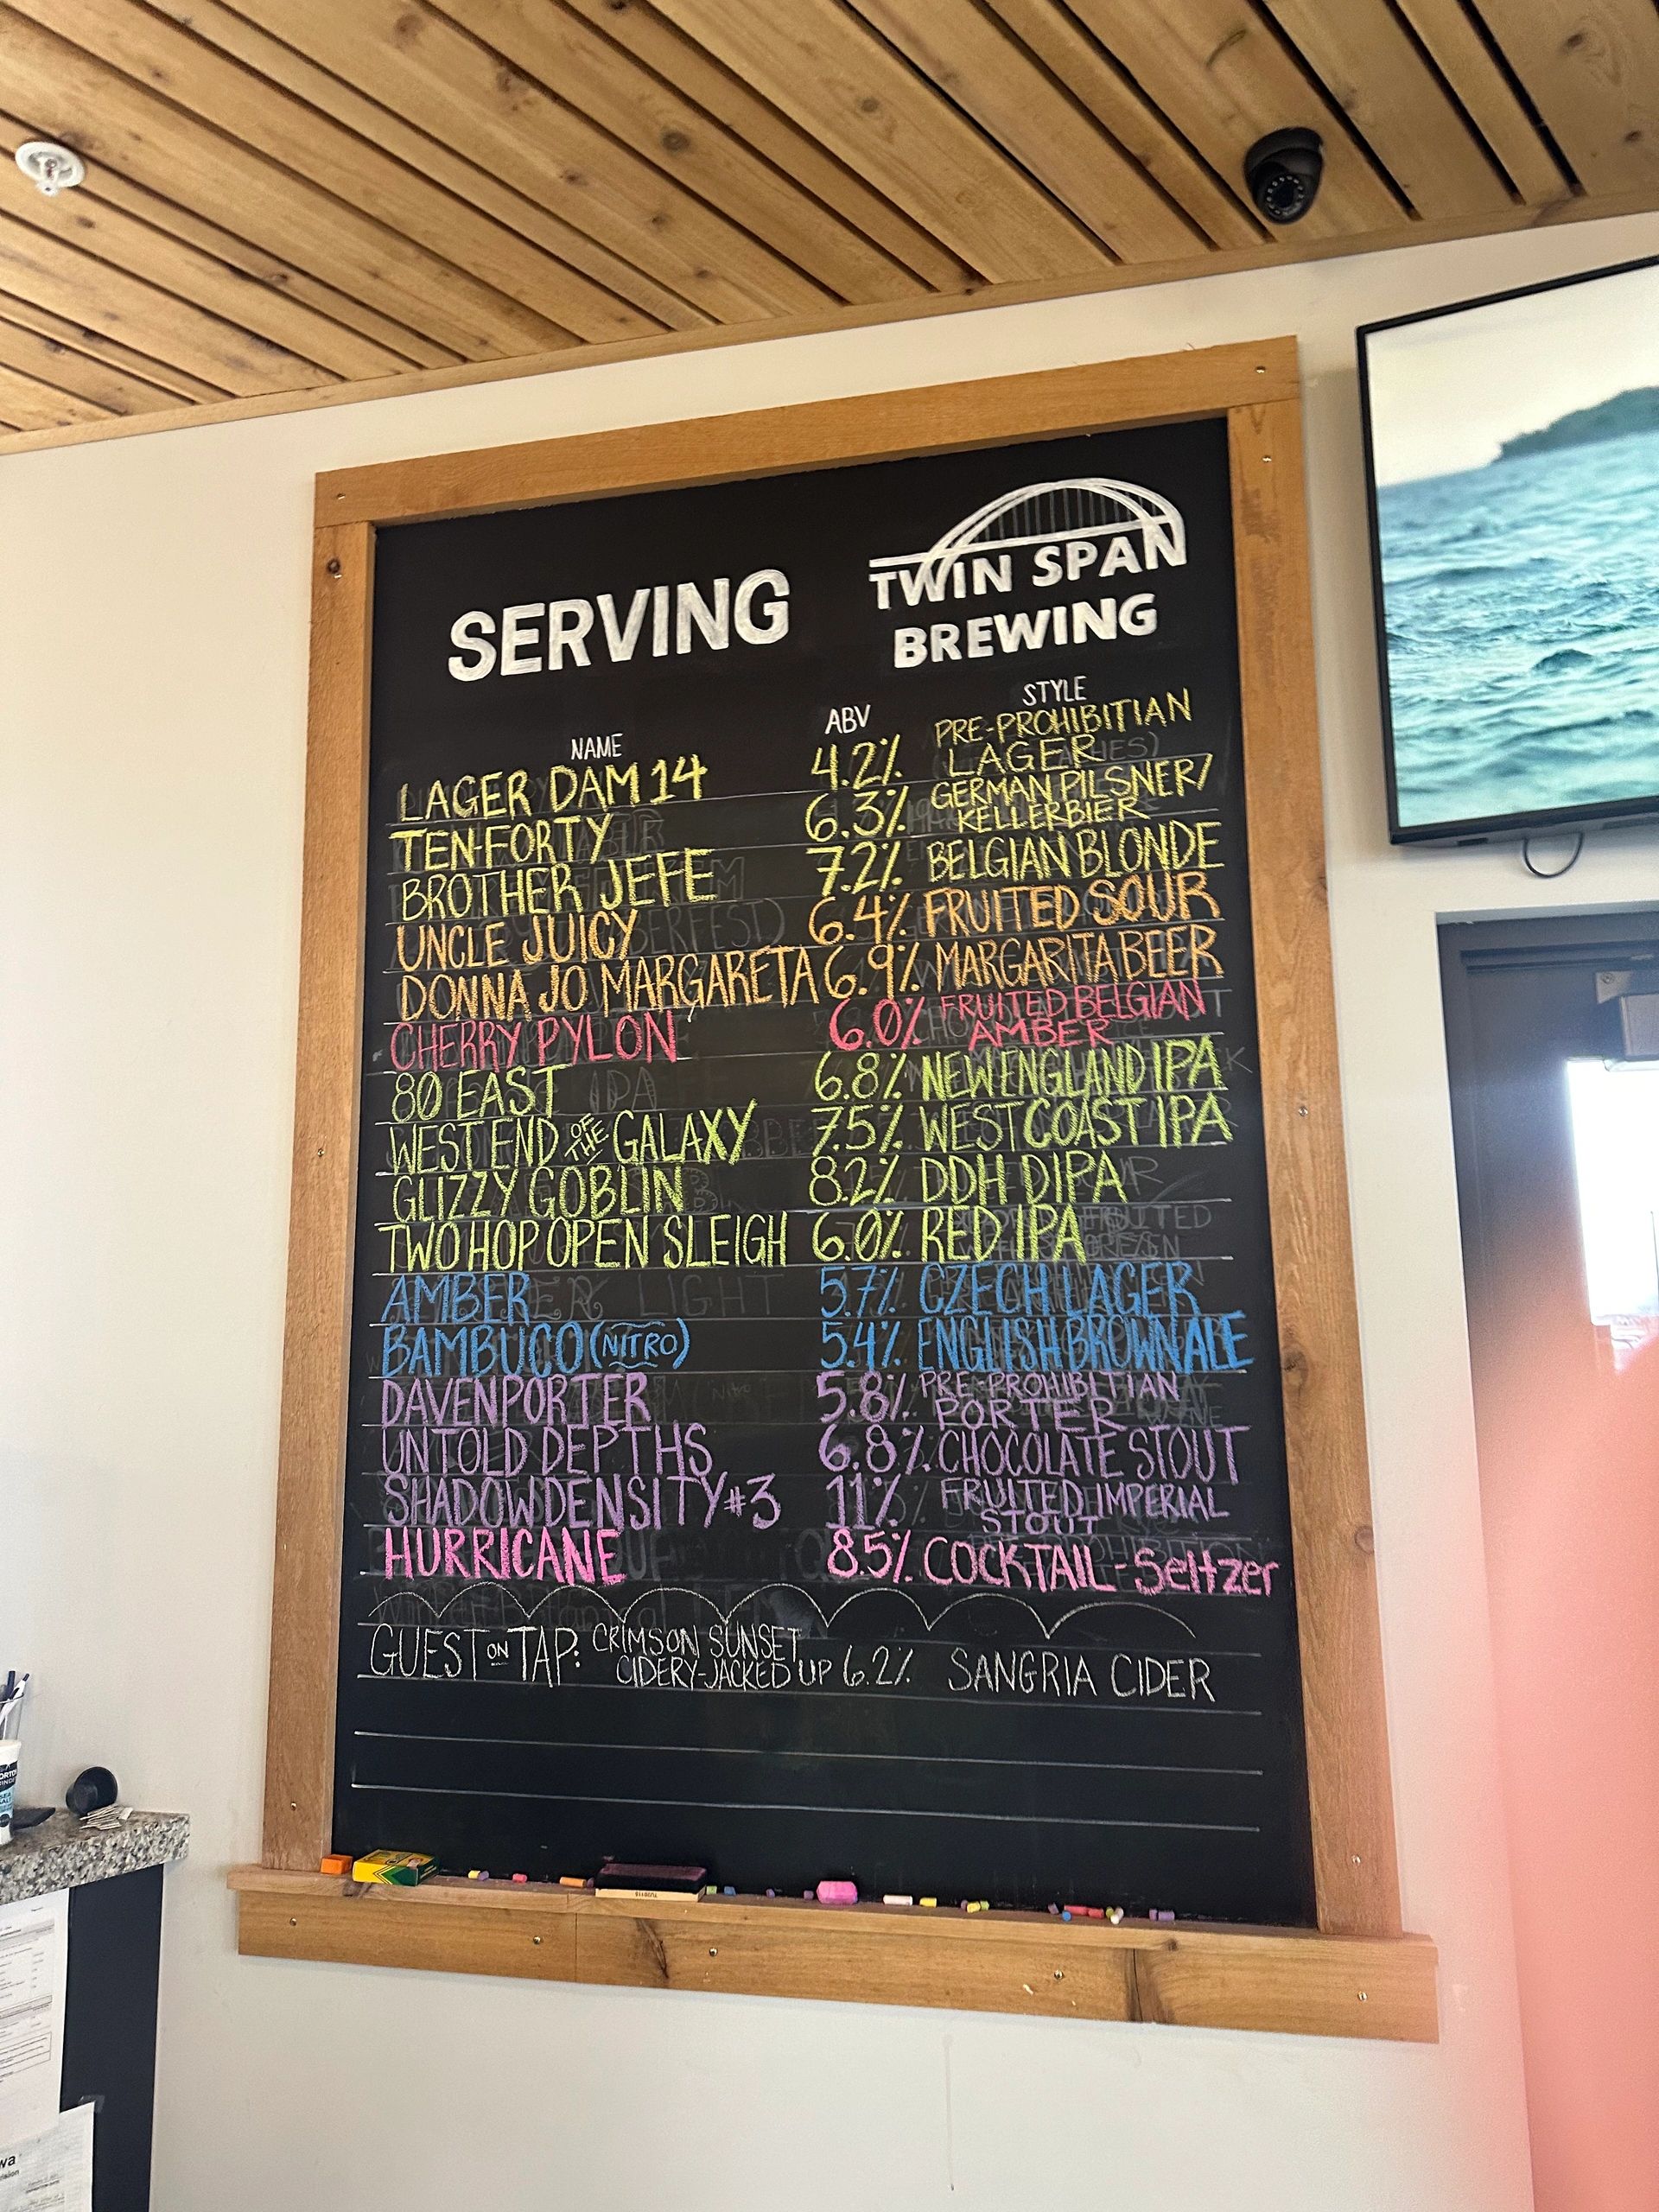 SERVING
TWIN SPAN
BREWING
NAME ABV STYLE
LAGER DAM 14 4.2% PRE-PROHIBITIAN
LAGER
TEN-FORTY 6.3% GERMAN PILSNER/
KELLERBIER
BROTHER JEFE 7.2% BELGIAN BLONDE
UNCLE JUICY 6.4% FRUITED SOUR
DONNA JO MARGARETA 6.9% MARGARITA BEER
CHERRY PYLON 6.0% FRUITED BELGIAN
AMBER
80 EAST 6.8% NEW ENGLAND IPA
WEST END OF THE GALAXY 7.5% WEST COAST IPA
GLIZZY GOBLIN 8.2% DDH DIPA
TWO HOP OPEN SLEIGH 6.0% RED IPA
AMBER 5.7% CZECH LAGER
BAMBUCO (NITRO) 5.4% ENGLISH BROWN ALE
DAVENPORTER 5.8% PRE-PROHIBITIAN
PORTER
UNTOLD DEPTHS 6.8% CHOCOLATE STOUT
SHADOW DENSITY #3 11% FRUITED IMPERIAL
STOUT
HURRICANE 8.5% COCKTAIL-Seltzer
GUEST ON TAP: CRIMSON SUNSET
CIDERY-JACKED UP 6.2% SANGRIA CIDER